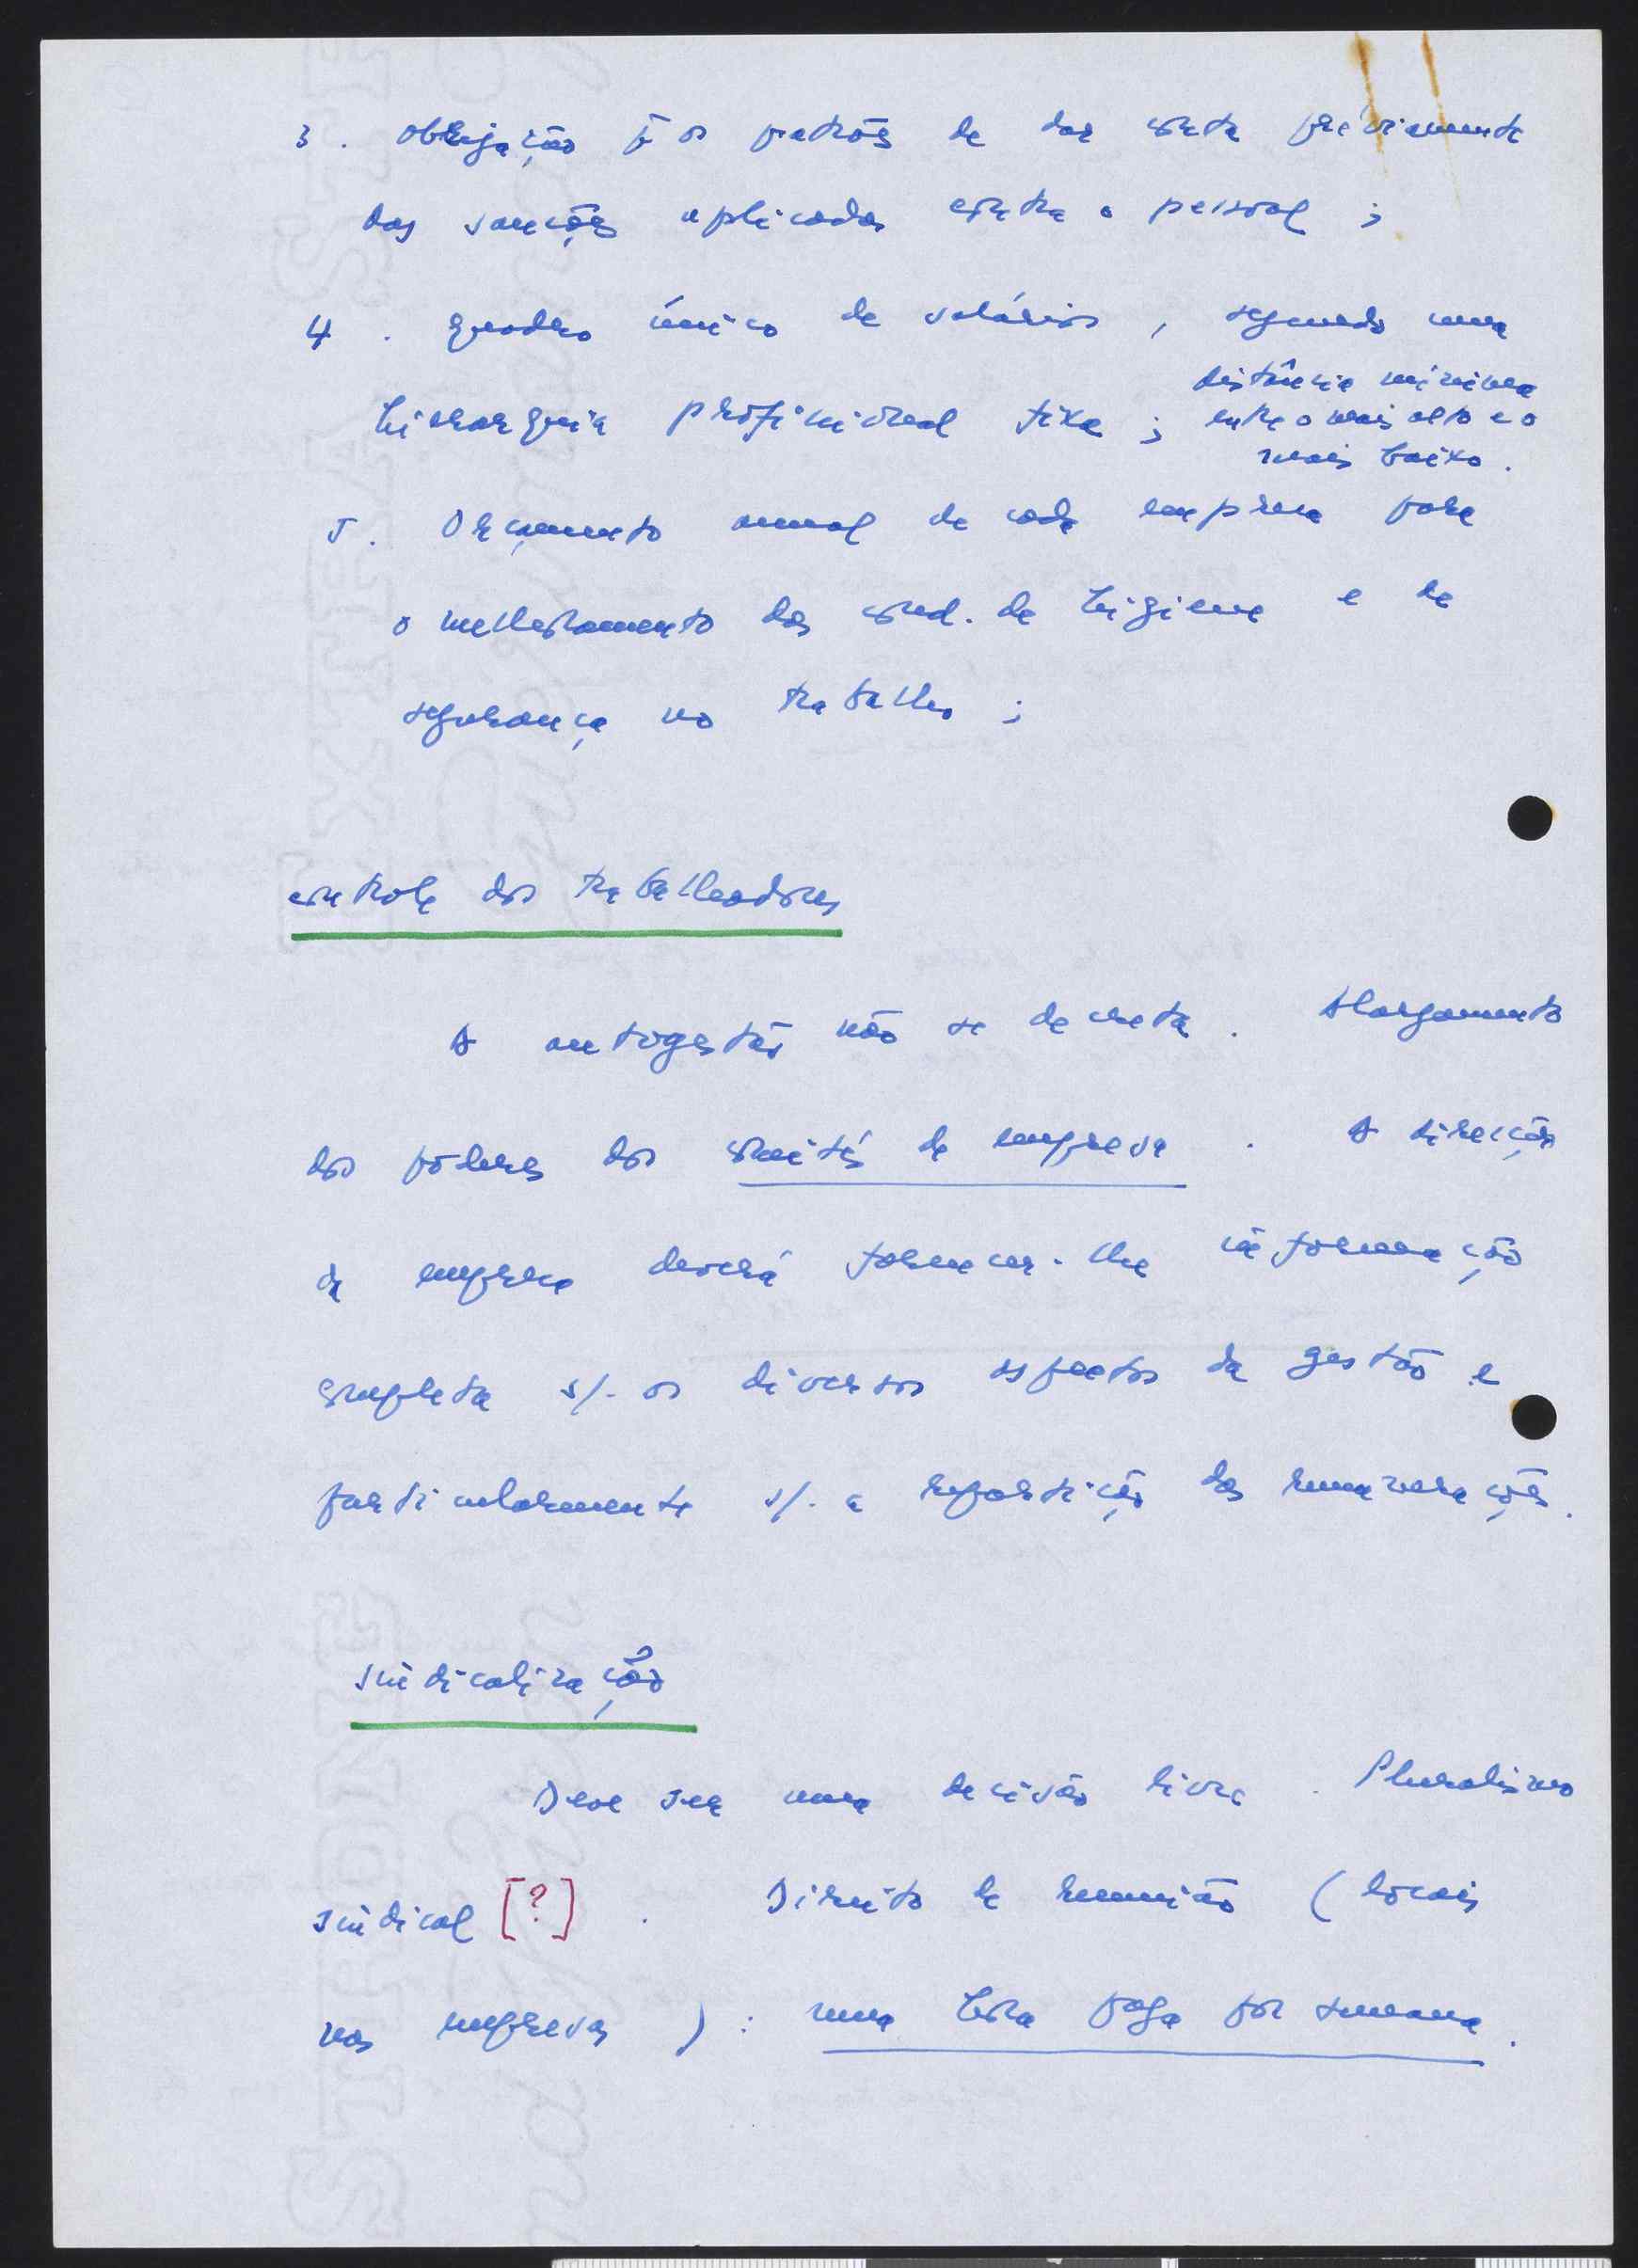 3. Obrigação p̄ os patrões de dar conta préviamente
das sanções aplicadas contra o pessoal;
4. Quadro único de salários, segundo uma
hierarquia profissional fixa; distância mínima
entre o mais alto e o
mais baixo.
5. Orçamento anual de cada empresa para
o melhoramento das cond. de higiene e de
segurança no trabalho;
controle dos trabalhadores
A autogestão não se decreta. Alargamento
dos poderes dos comités de empresa. A direcção
da empresa deverá fornecer-lhe informação
completa s/. os diversos aspectos da gestão e
particularmente s/. a repartição das remunerações.
sindicalização
Deve ser uma decisão livre. Pluralismo
sindical [?]. Direito de reunião (locais
nas empresas): uma hora paga por semana.